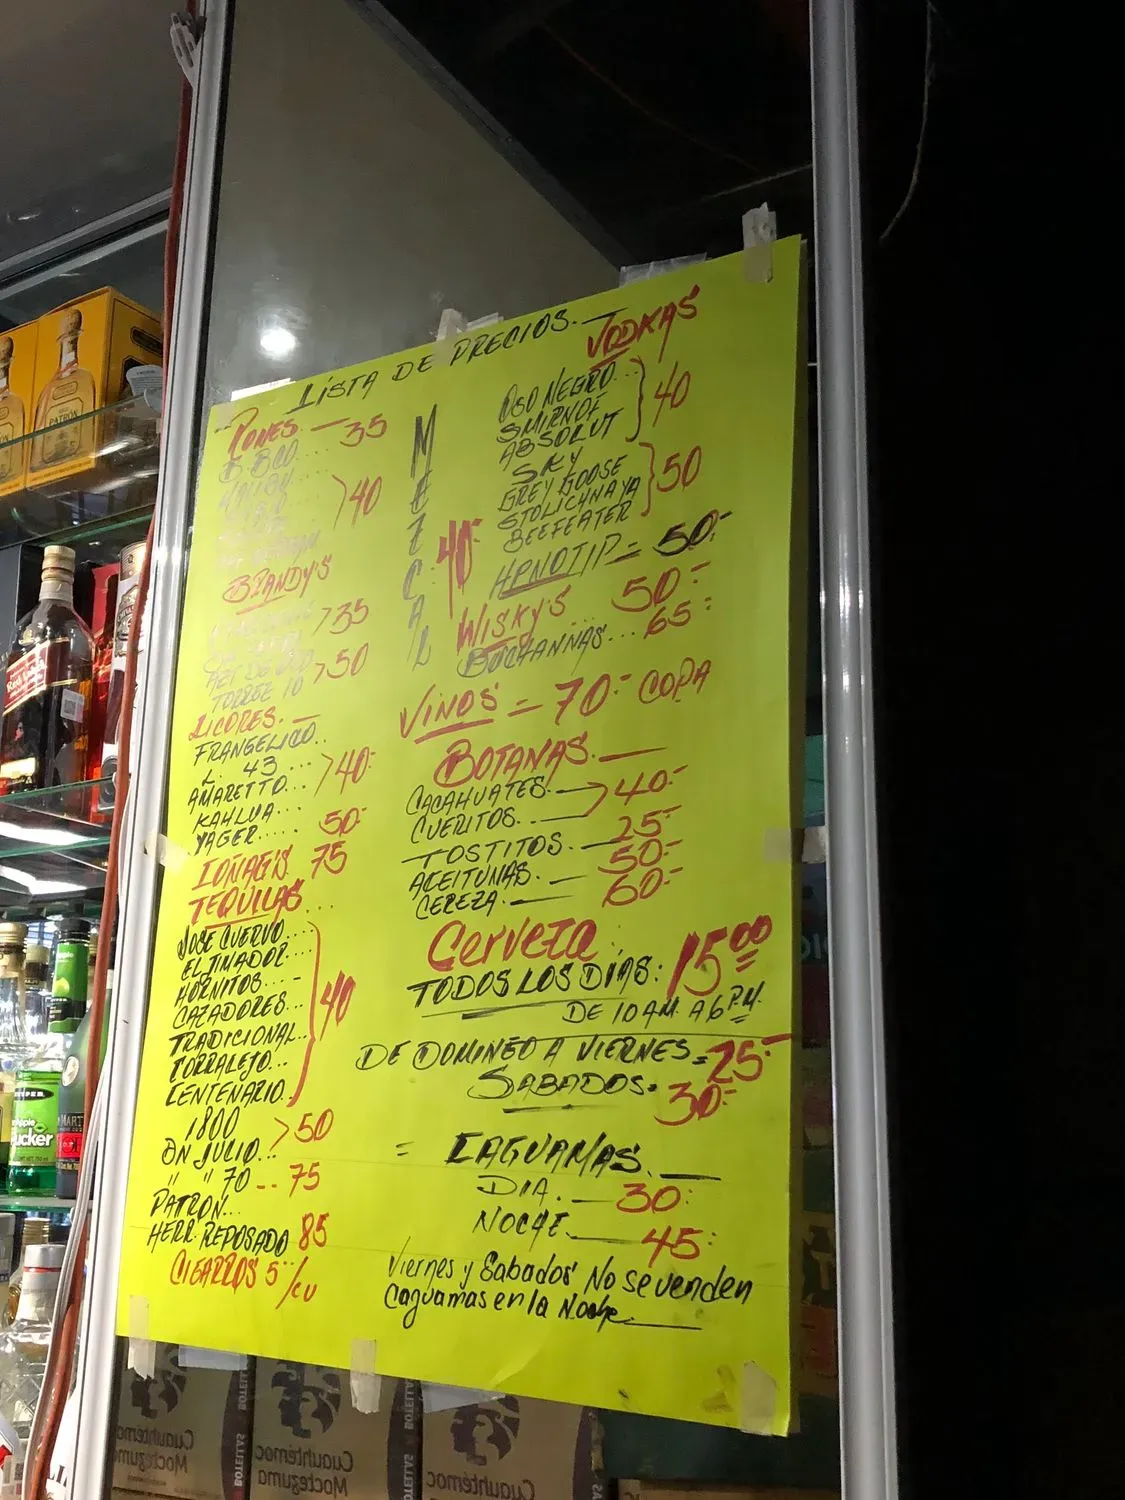 LISTA DE PRECIOS.
RONES. — 35
B.BCO....
40
BRANDY'S
35
AZT DE ORO
TORREZ 10 > 50
LICORES. —
FRANGELICO..
L. 43...
AMARETTO.. > 40.-
KAHLUA...
YAGER..... 50.-
75
TEQUILAS...
JOSE CUERVO...
EL JIMADOR...
HORNITOS...-
CAZADORES...
TRADICIONAL...
TORRALEJO...
CENTENARIO.
40
1800
DN JULIO... > 50
" " 70 -- 75
PATRÓN...
HERR. REPOSADO 85
CIGARROS 5.- /cu
MEZCAL
40.-
VODKAS
OSO NEGRO...
SMIRNOF
ABSOLUT
40
SKY
GREY GOOSE
STOLICHNAYA
BEEFEATER
50
HPNOTIP = 50.-
WISKY'S... 50.-
BUCHANNAS... 65.-
VINOS = 70.- COPA
BOTANAS. —
CACAHUATES. —
CUERITOS. — > 40.-
TOSTITOS. — 25.-
ACEITUNAS. — 50.-
CEREZA. — 60.-
Cerveza
TODOS LOS DIAS: 15.00
DE 10 AM. A 6 P.M.
DE DOMINGO A VIERNES = 25.-
SABADOS = 30.-
= CAGUAMAS. —
DIA. — 30.-
NOCHE. — 45.-
Viernes y Sabados No se venden
Caguamas en la Noche
PATRÓN
Red Label
Pucker
Cuauhtémoc
Moctezuma
BOTELLAS
Cuauhtémoc
Moctezuma
BOTELLAS
Cuauhtémoc
Moctezuma